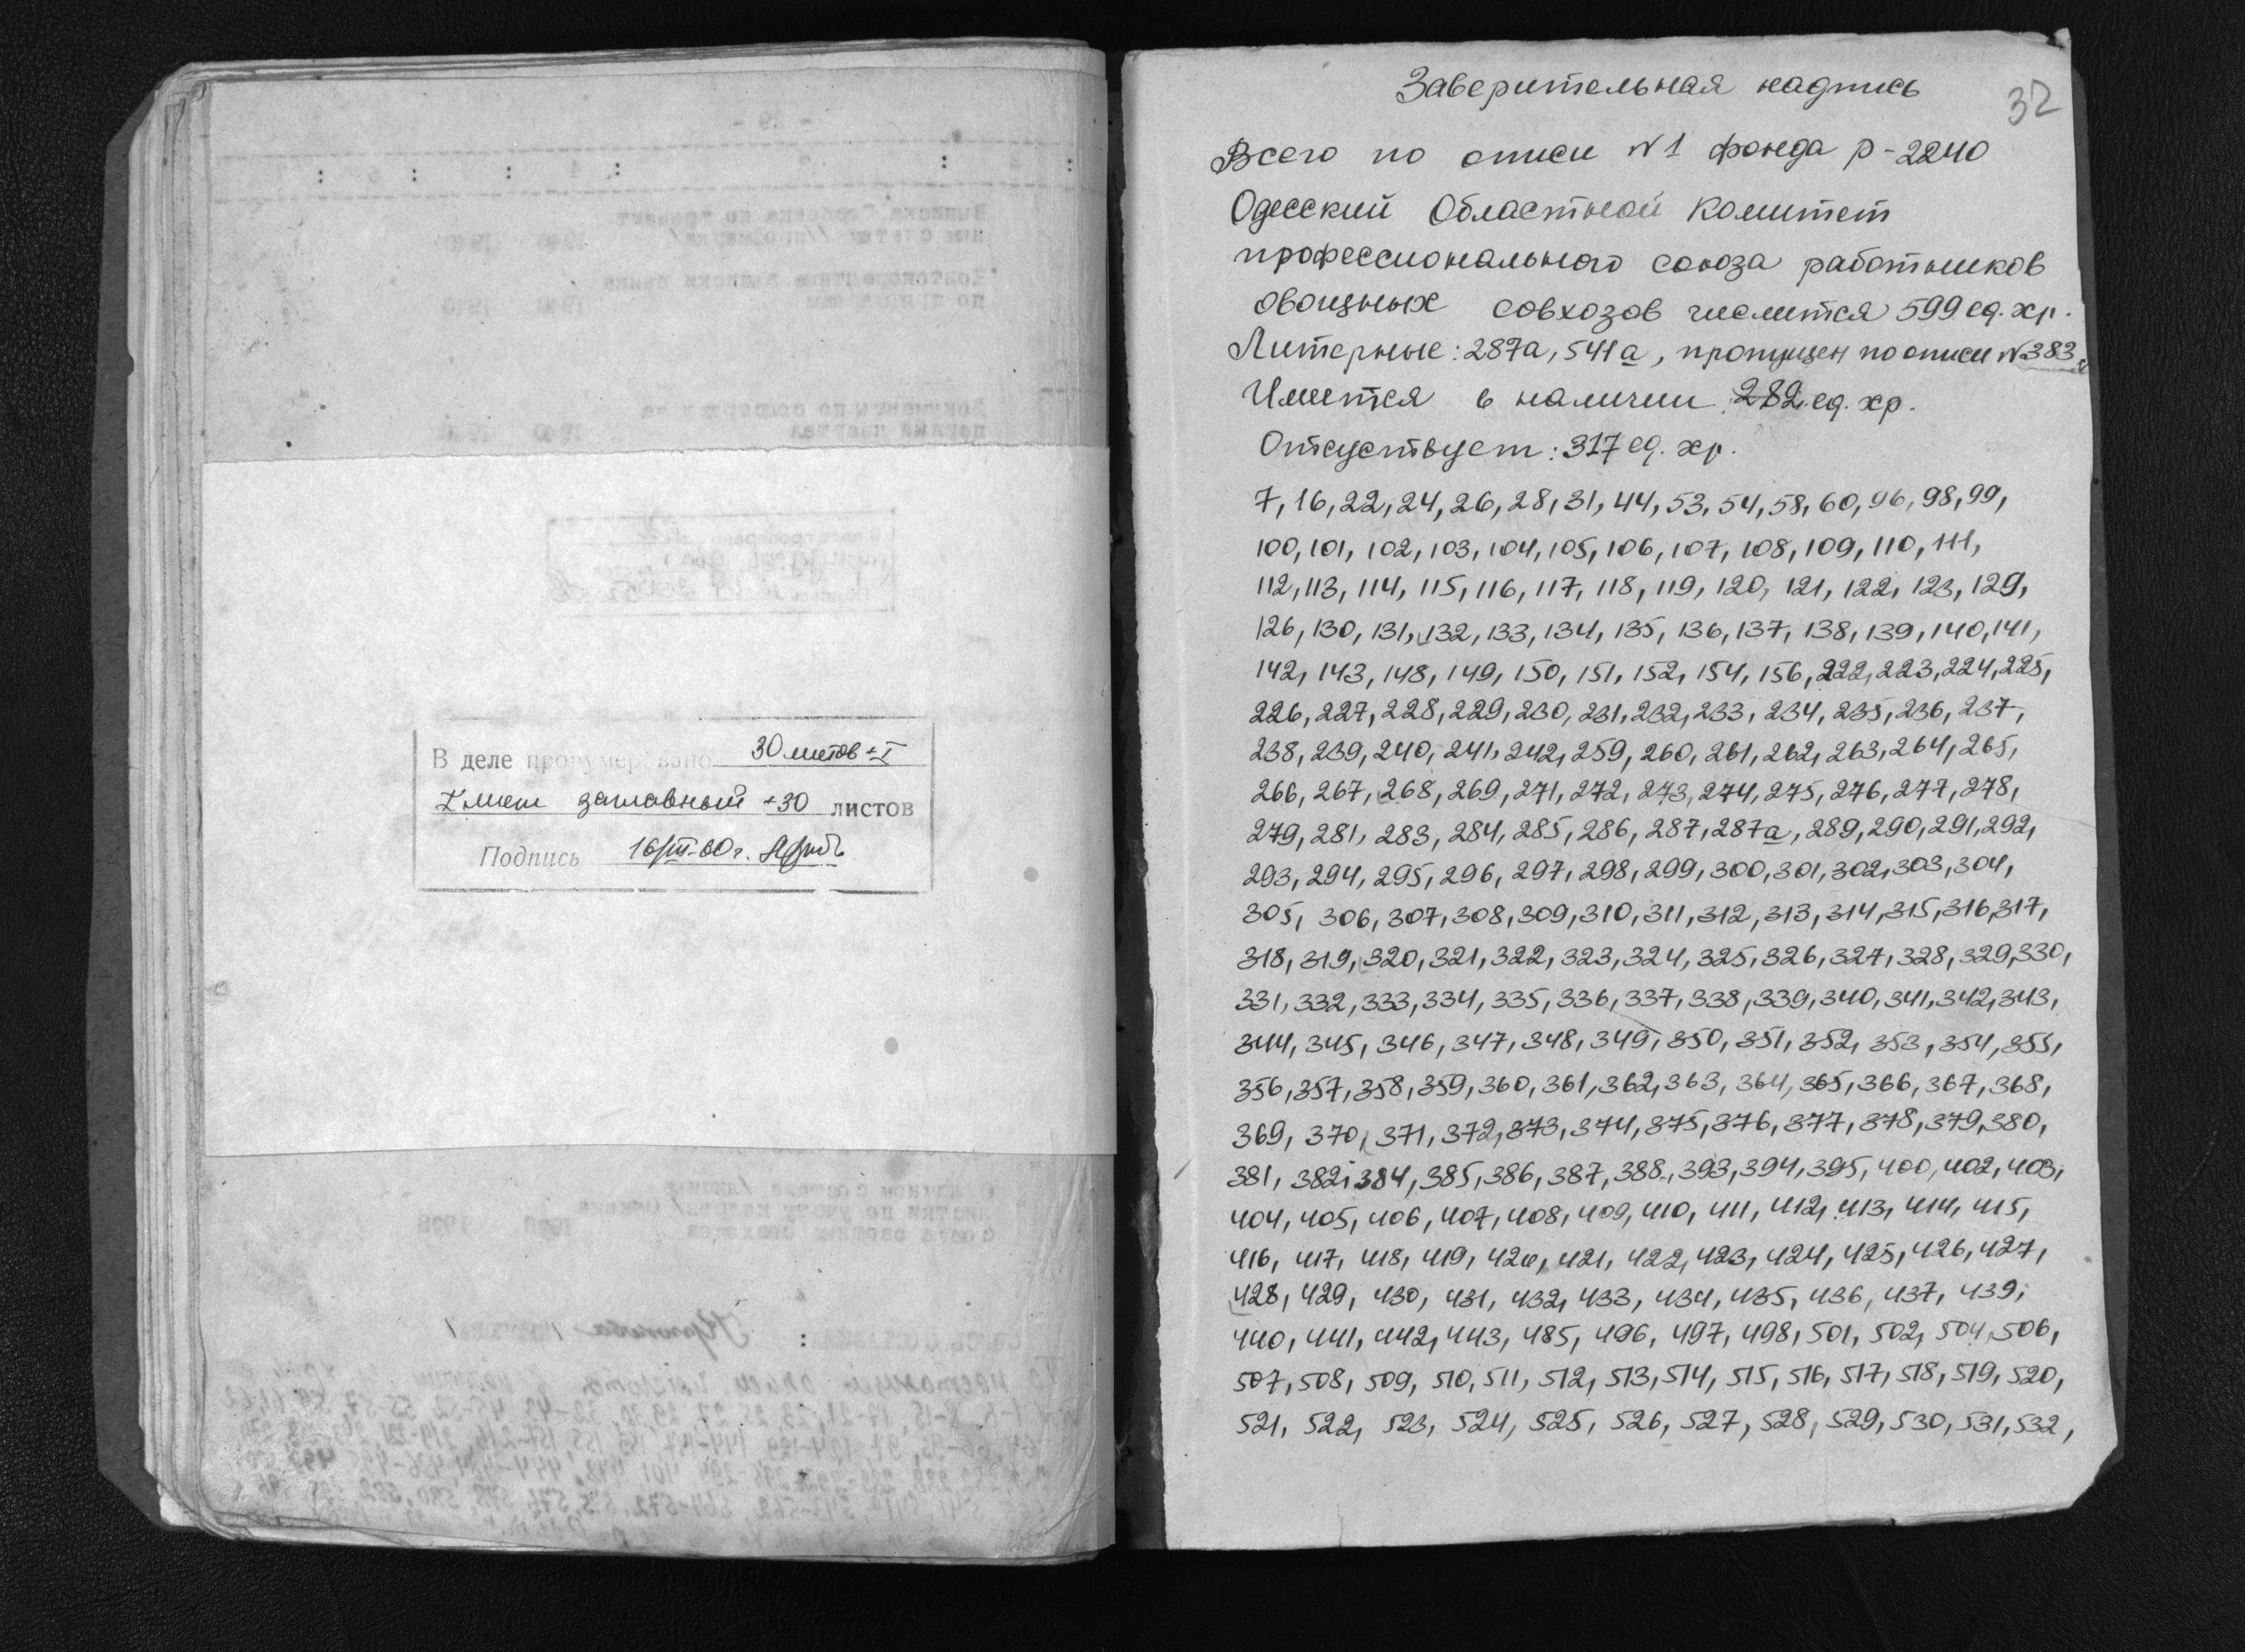 В деле пронумеровано 30 листов + I
I лист заглавный + 30 листов
Подпись 16/III-60 г.
32
Заверительная надпись
Всего по описи №1 фонда р-2240
Одесский Областной Комитет
профессионального союза работников
овощных совхозов числится 599 ед. хр.
Литерные: 287а, 541а, пропущен по описи №383.
Имеется в наличии: 282 ед. хр.
Отсуствует: 317 ед. хр.
7, 16, 22, 24, 26, 28, 31, 44, 53, 54, 58, 60, 96, 98, 99,
100, 101, 102, 103, 104, 105, 106, 107, 108, 109, 110, 111,
112, 113, 114, 115, 116, 117, 118, 119, 120, 121, 122, 123, 129,
126, 130, 131, 132, 133, 134, 135, 136, 137, 138, 139, 140, 141,
142, 143, 148, 149, 150, 151, 152, 154, 156, 222, 223, 224, 225,
226, 227, 228, 229, 230, 231, 232, 233, 234, 235, 236, 237,
238, 239, 240, 241, 242, 259, 260, 261, 262, 263, 264, 265,
266, 267, 268, 269, 271, 272, 273, 274, 275, 276, 277, 278,
279, 281, 283, 284, 285, 286, 287, 287а, 289, 290, 291, 292,
293, 294, 295, 296, 297, 298, 299, 300, 301, 302, 303, 304,
305, 306, 307, 308, 309, 310, 311, 312, 313, 314, 315, 316, 317,
318, 319, 320, 321, 322, 323, 324, 325, 326, 327, 328, 329, 330,
331, 332, 333, 334, 335, 336, 337, 338, 339, 340, 341, 342, 343,
344, 345, 346, 347, 348, 349, 350, 351, 352, 353, 354, 355,
356, 357, 358, 359, 360, 361, 362, 363, 364, 365, 366, 367, 368,
369, 370, 371, 372, 373, 374, 375, 376, 377, 378, 379, 380,
381, 382, 384, 385, 386, 387, 388, 393, 394, 395, 400, 402, 403,
404, 405, 406, 407, 408, 409, 410, 411, 412, 413, 414, 415,
416, 417, 418, 419, 420, 421, 422, 423, 424, 425, 426, 427,
428, 429, 430, 431, 432, 433, 434, 435, 436, 437, 439,
440, 441, 442, 443, 485, 496, 497, 498, 501, 502, 504, 506,
507, 508, 509, 510, 511, 512, 513, 514, 515, 516, 517, 518, 519, 520,
521, 522, 523, 524, 525, 526, 527, 528, 529, 530, 531, 532,